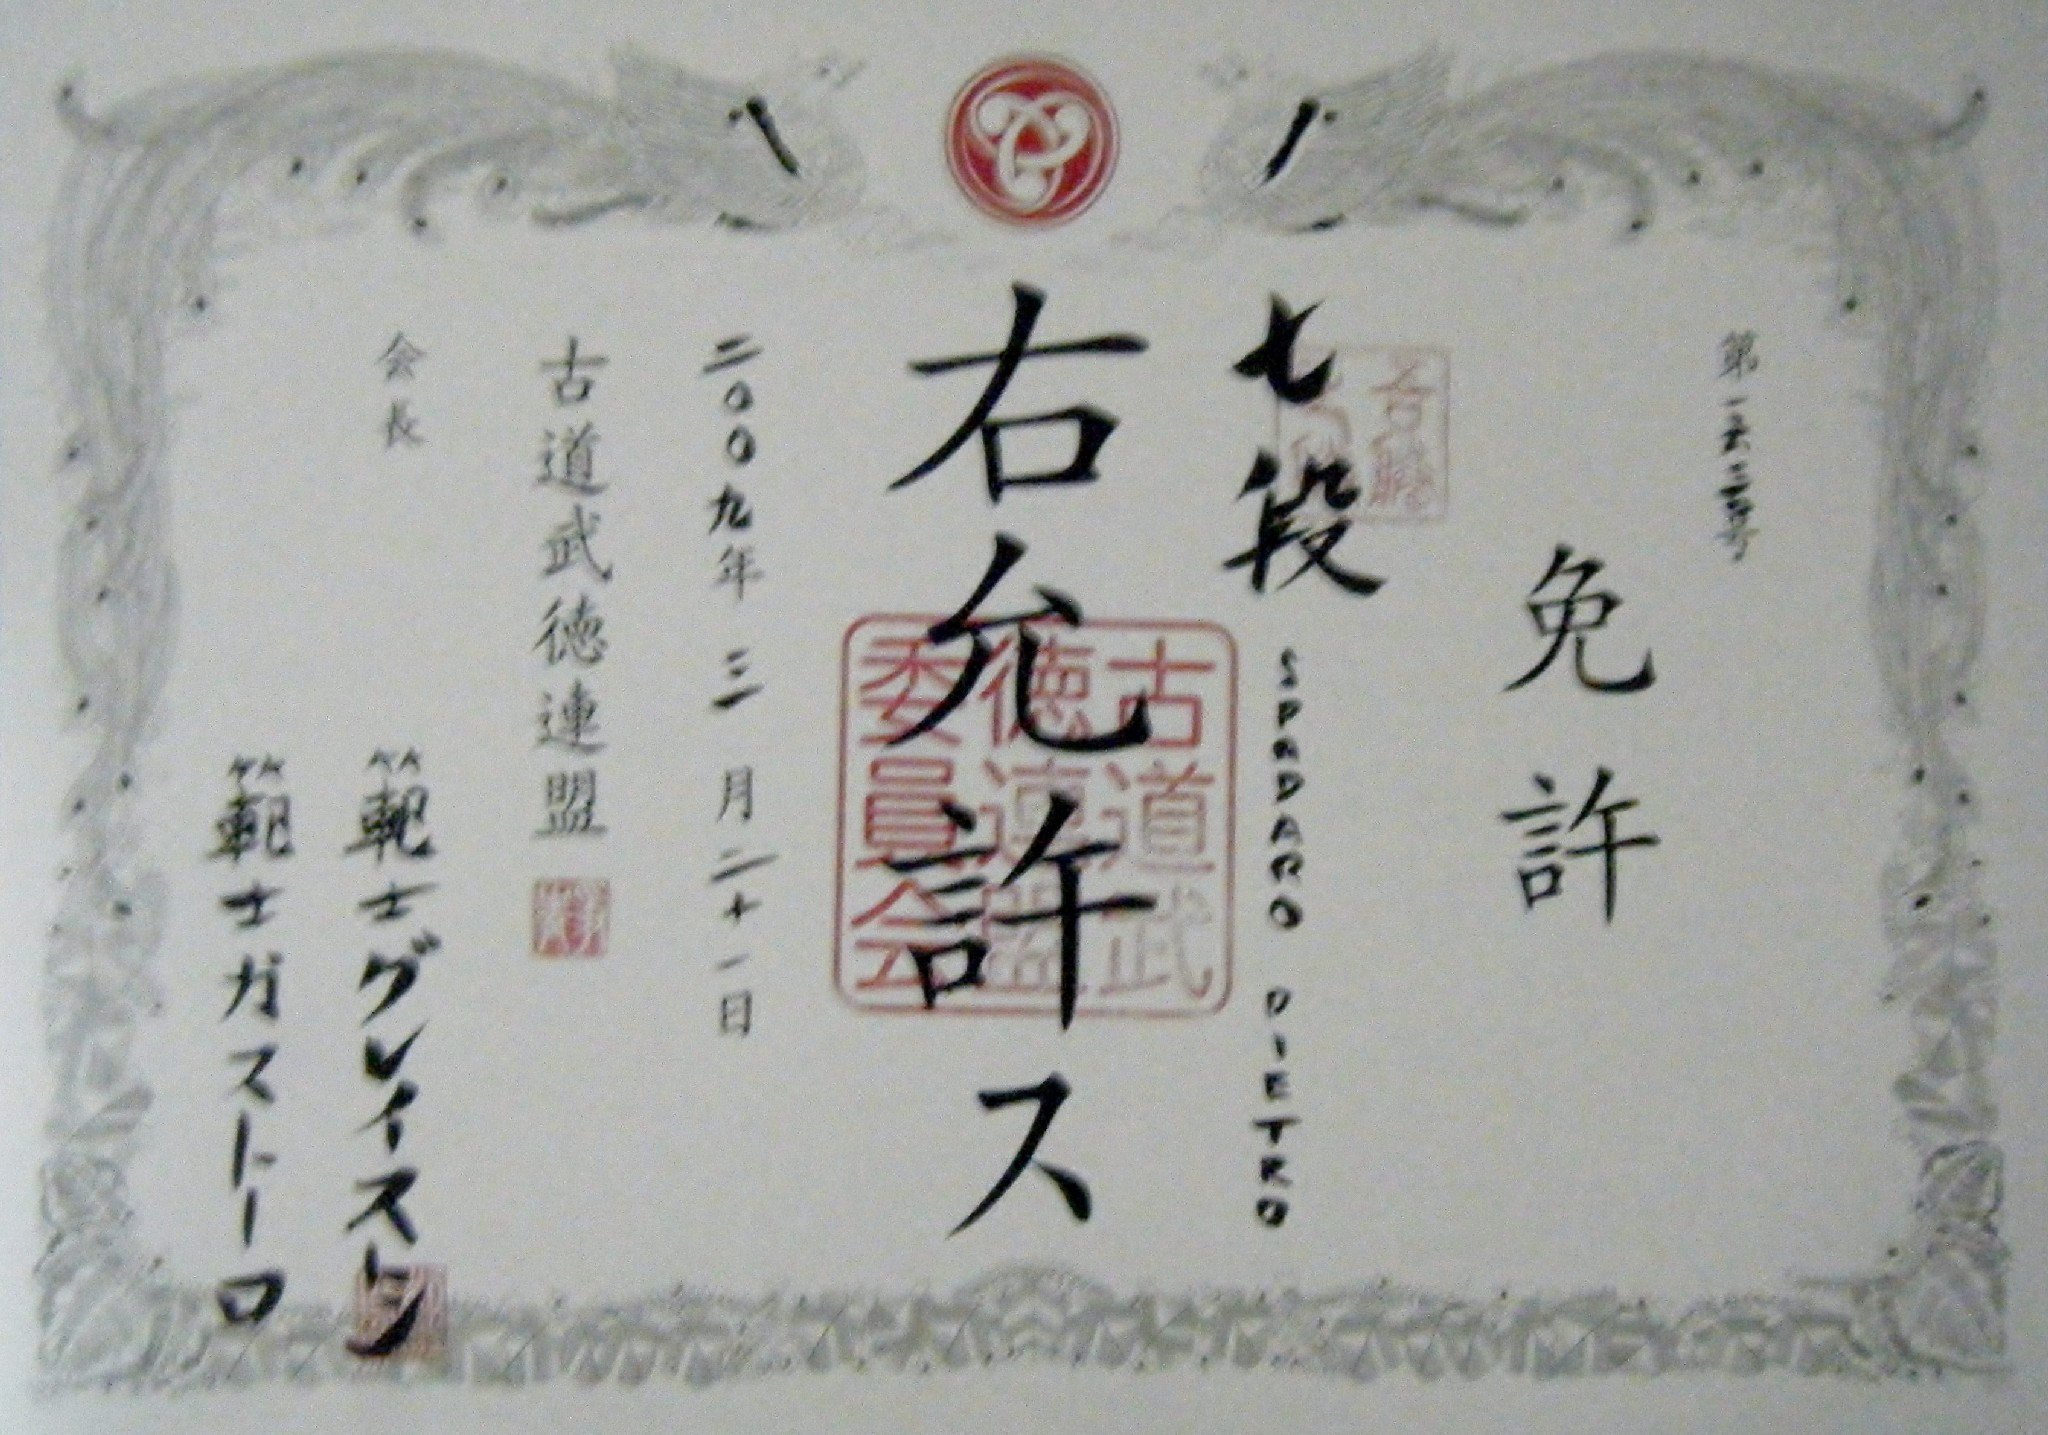 第一六二号
免許
七段 SPADARO PIETRO
右允許ス
古道武徳連盟委員会
二〇〇九年三月二十一日
古道武徳連盟
会長 範士グレイスン
範士ガストーロ